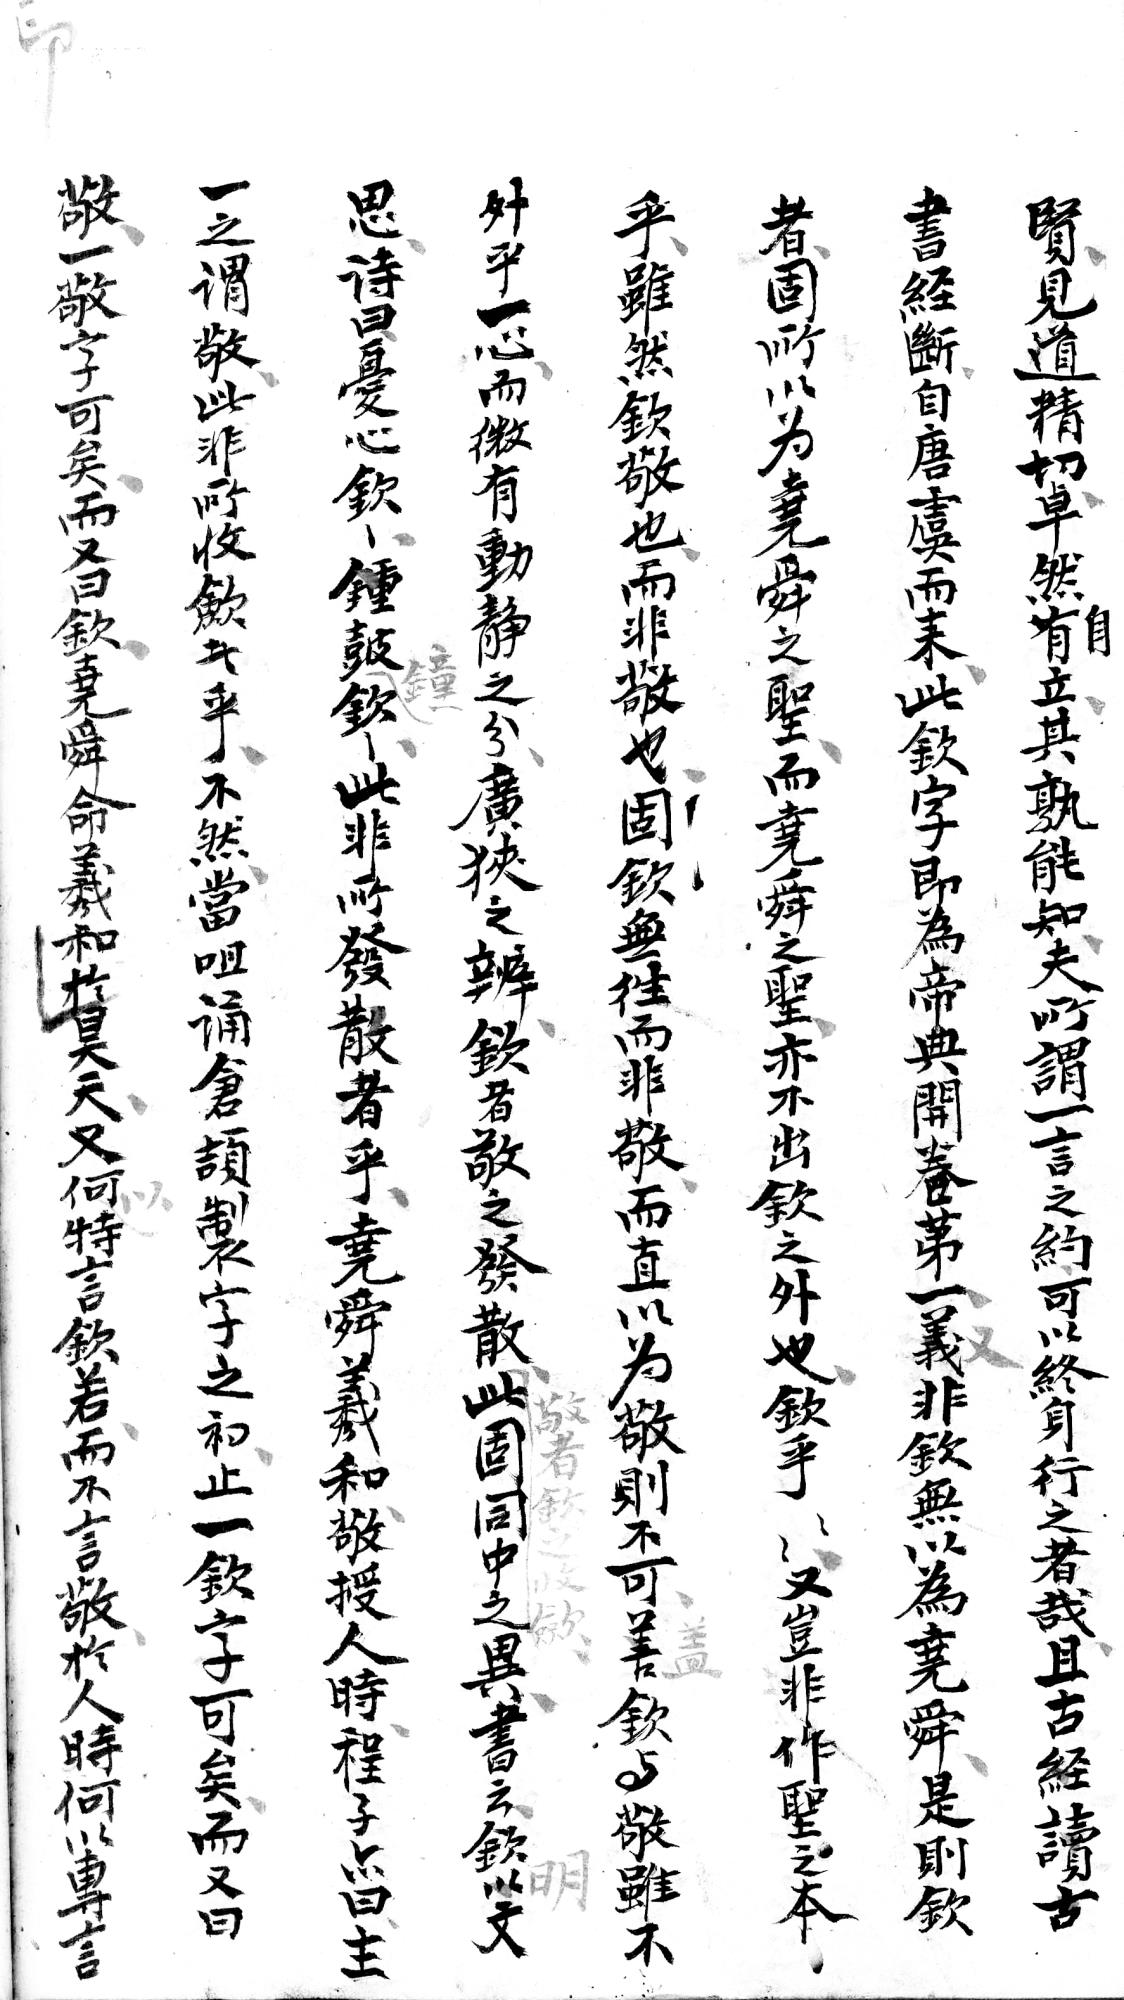 賢見道精切卓然有自立其孰能知夫所謂一言之約可以終身行之者哉且古經讀古
書經斷自唐虞而来此欽字即為帝典開卷第一義又非欽無以為堯舜是則欽
者固所以为堯舜之聖而堯舜之聖亦不出欽之外也欽乎〻〻又豈非作聖之本
乎雖然欽敬也而非敬也固欽無徃而非敬而直以为敬則不可盖善欽与敬雖不
外乎一心而微有動静之分廣狹之辨欽者敬之發散敬者欽之收斂此固同中之異書云欽明以文
思诗曰憂心欽〻鍾鼓欽〻鐘此非所發散者乎堯舜羲和敬授人時程子亦曰主
一之谓敬此非所收斂者乎不然當咀誦倉頡製字之初止一欽字可矣而又曰
敬一敬字可矣而又曰欽堯舜命羲和於昊天又何以特言欽若而不言敬於人時何以專言
印